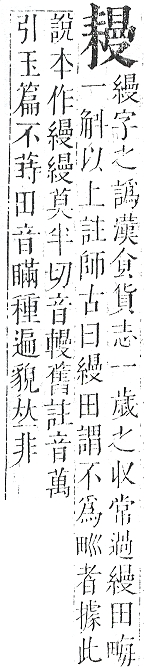 𦓽
縵字之譌漢食貨志一歲之收常過縵田畮
一斛以上註師古曰縵田謂不爲甽者據此
說本作縵縵莫半切音幔舊註音萬
引玉篇不蒔田音瞞種遍貌𠀤非